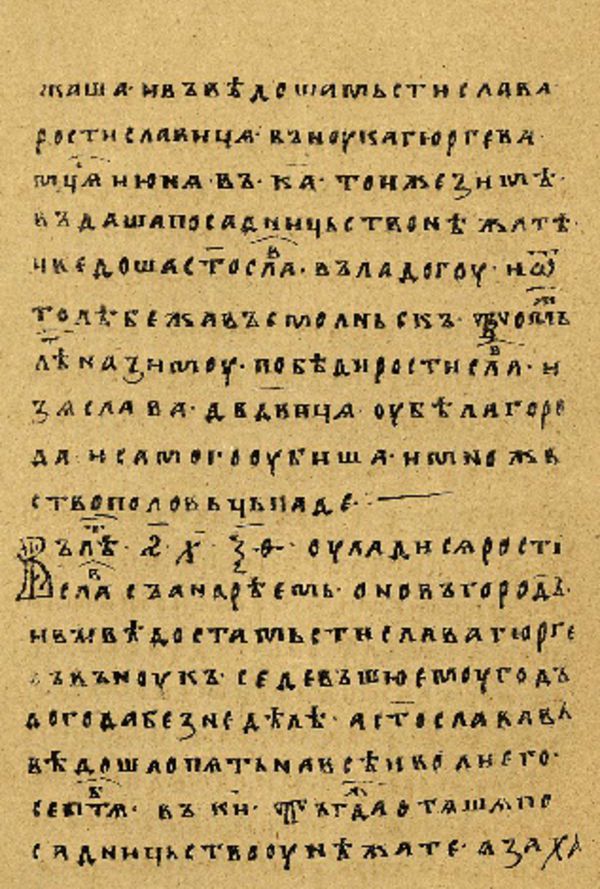 жаша· и въведоша мьстислава
ростиславицѧ· въноука гюргева
мцѧ июнѧ· въ· ка· тои же зимѣ·
въдаша посадницьство нѣжатѣ·
и кедоша стосла· въ ладогоу· и ѿ
толѣ· бежа въ смольньскъ·
лѣ на зимоу· побѣди ростисла· и
зѧслава· двдвица· оу бѣлагоро
да и самого оубиша· и множь
ство половьць паде·
Въ лѣ· ҂ѕ· х҃· ѯ҃·ѳ· оуладисѧ рости
сла съ андрѣемь· о новъгородъ·
и въıведоша мьстислава гюрге
въ въноукъ· седевъшю емоу годъ
до года без недѣлѣ· а стослава въ
вѣдоша опѧть на всеи воли его·
сентѧ· въ кн· тъгда оташѧ по
садницьство оу нѣжате· а заха